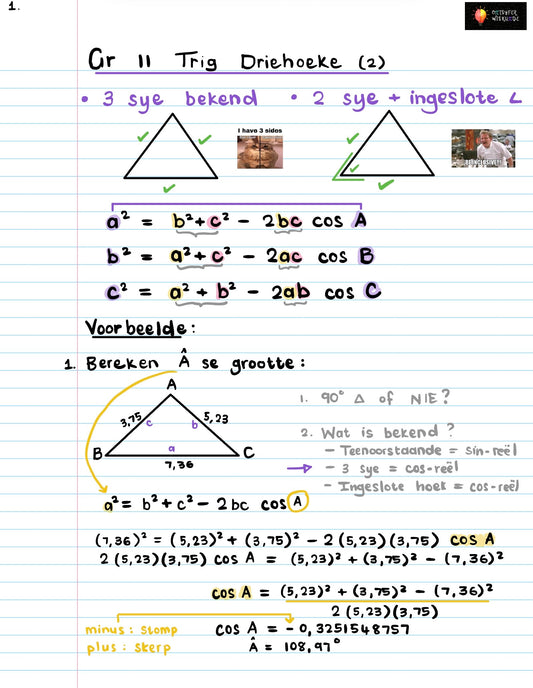 1.
OUTDOFER
WISKUNDE
Gr 11 Trig Driehoeke (2)
• 3 sye bekend • 2 sye + ingeslote ∠
I have 3 sides
a² = b²+c² - 2bc cos A
b² = a²+c² - 2ac cos B
c² = a² + b² - 2ab cos C
Voorbeelde:
1. Bereken Â se grootte:
A
3,75 c b 5,23
B a C
7,36
1. 90° Δ of NIE?
2. Wat is bekend?
- Teenoorstaande = sin-reël
→ - 3 sye = cos-reël
- Ingeslote hoek = cos-reël
a² = b² + c² - 2bc cos A
(7,36)² = (5,23)² + (3,75)² - 2(5,23)(3,75) cos A
2(5,23)(3,75) cos A = (5,23)² + (3,75)² - (7,36)²
cos A = (5,23)² + (3,75)² - (7,36)²
2(5,23)(3,75)
minus: stomp cos A = - 0,3251548757
plus: skerp Â = 108,97°